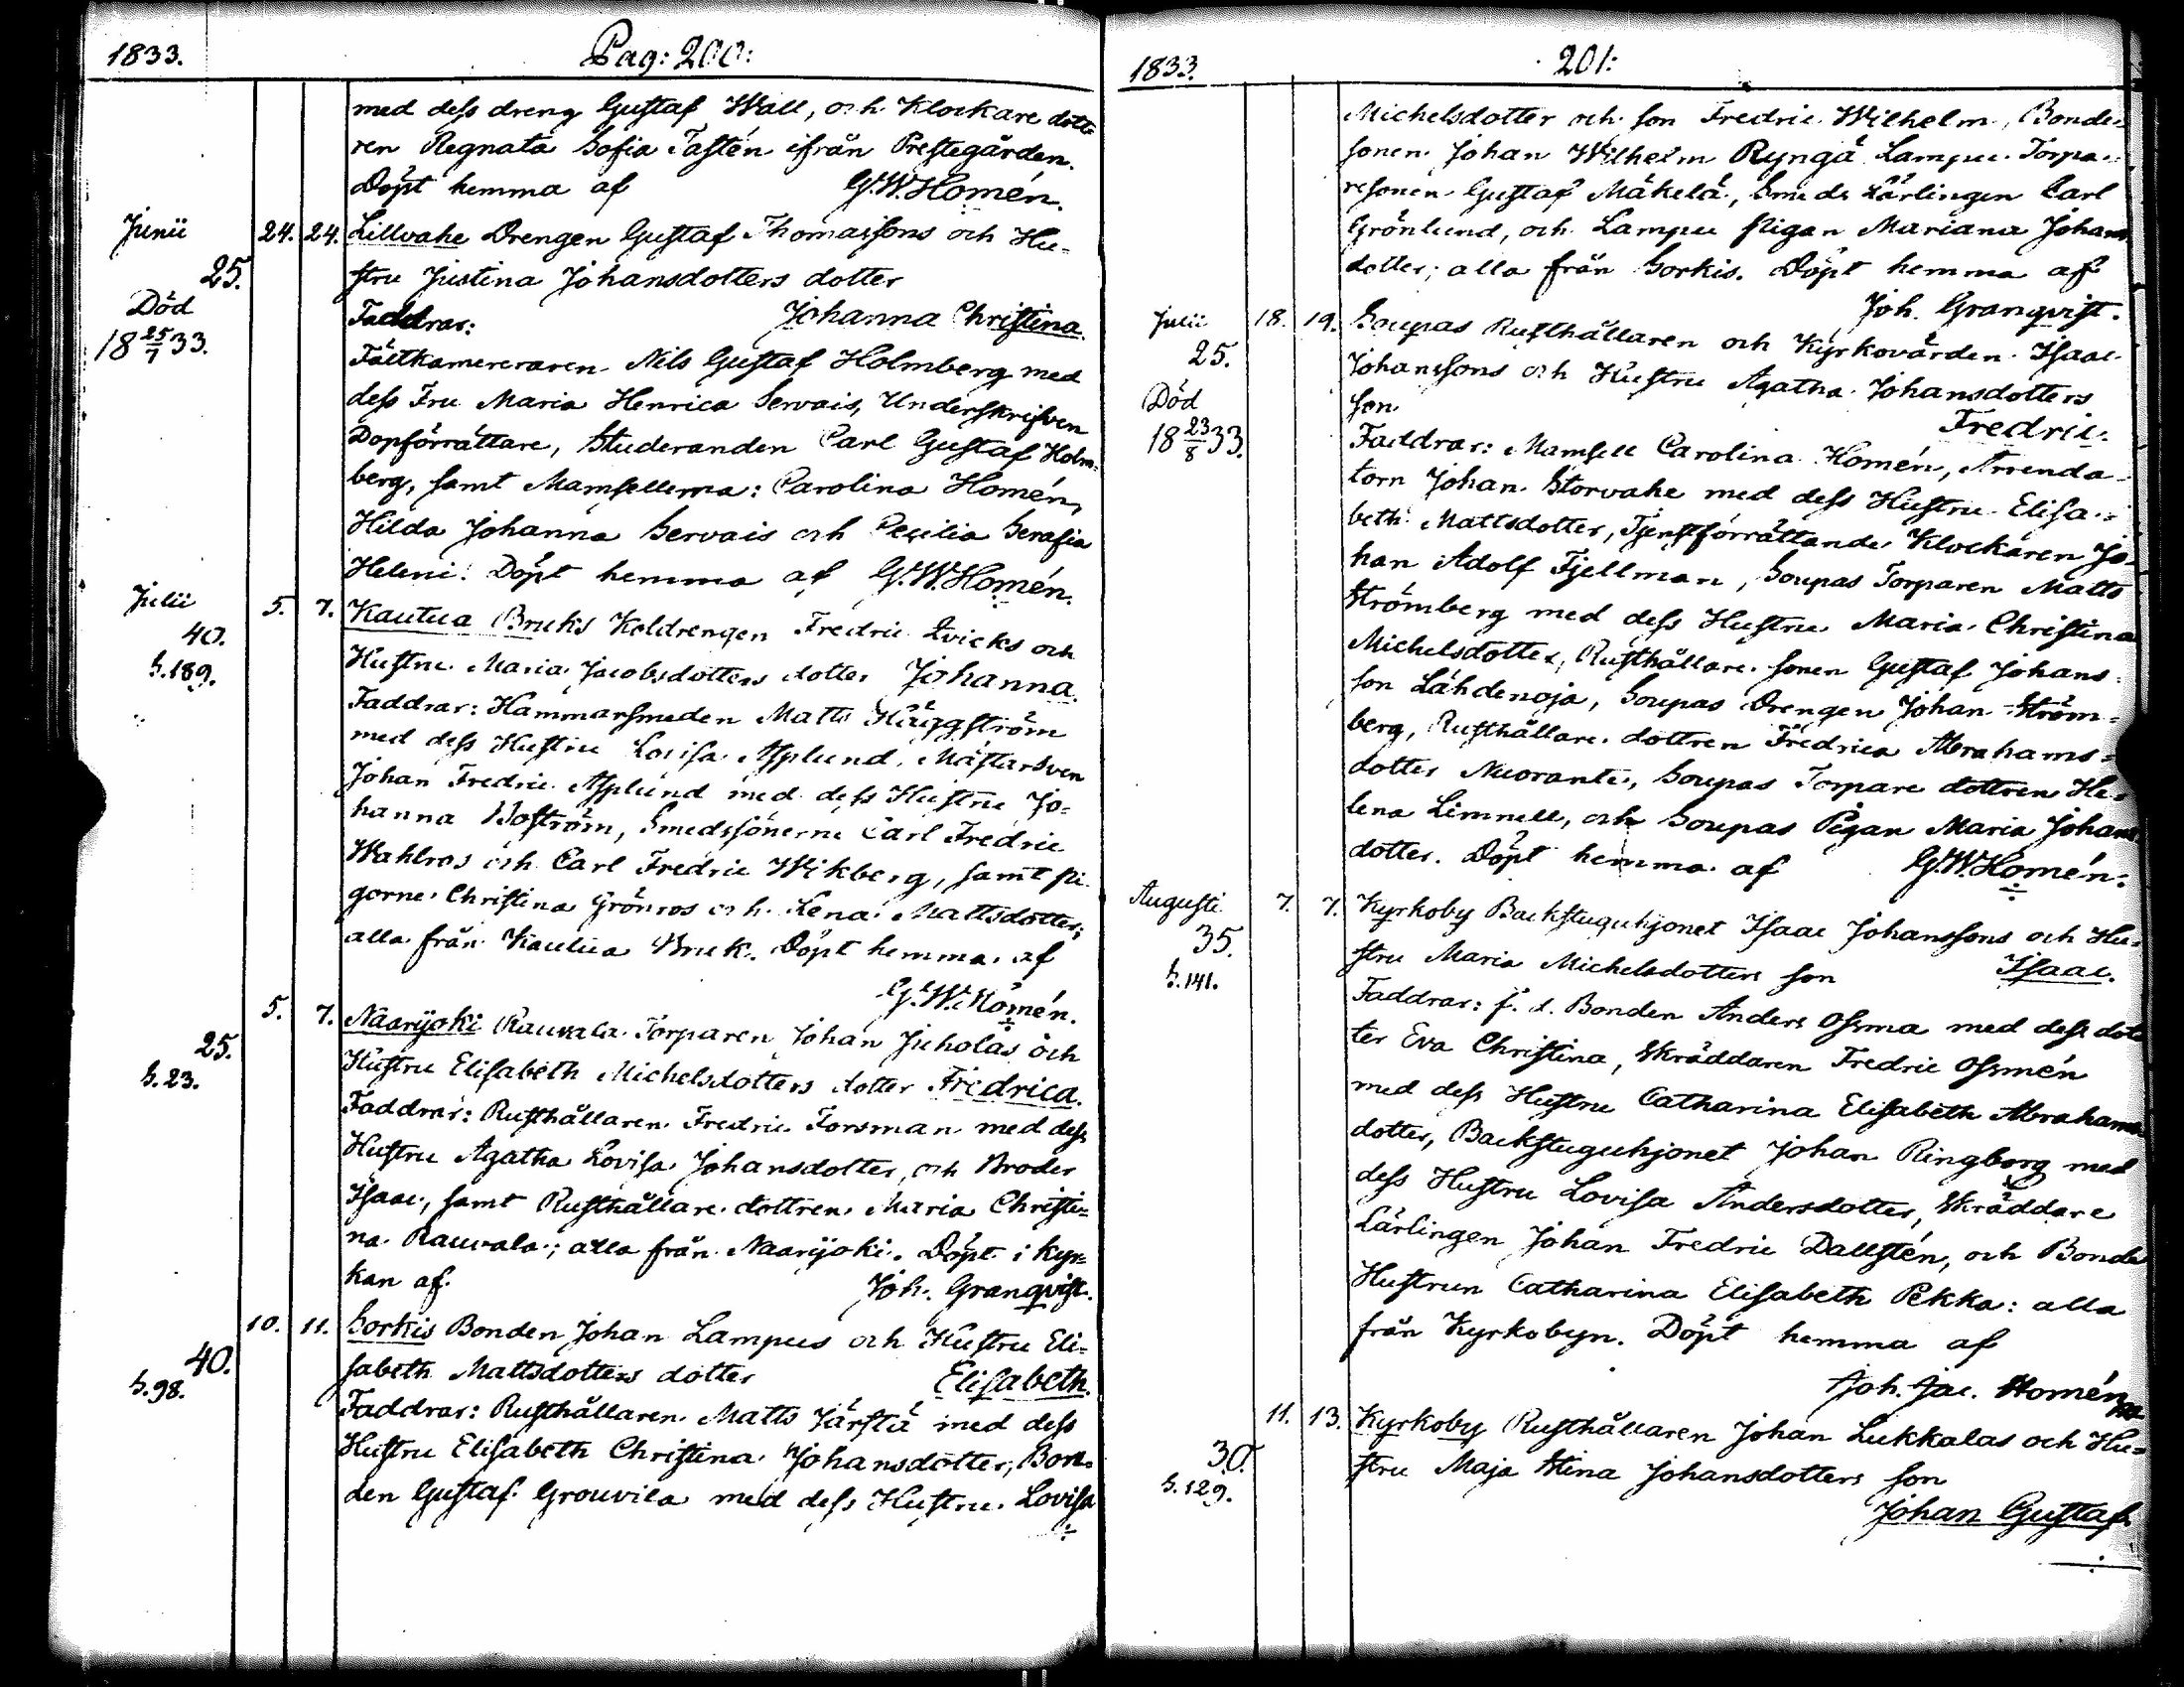 1833.
Pag: 200:
med dess dreng Gustaf Wall, och Klockare dotte
ren Regnata Sofia Tastén ifrån Prestegården.
Döpt hemma af G.W.Homén.
Junii 24. 24. Lillvahe Drengen Gustaf Thomassons och Hu-
25. stru Justina Johansdotters dotter
Död Faddrar: Johanna Christina.
18 25/7 33. Fältkamereraren Nils Gustaf Holmberg med
dess Fru Maria Henrica Servais, Underskrifven
Dopförrättare, Studeranden Carl Gustaf Holm-
berg, samt Mamsellerna: Carolina Homén,
Hilda Johanna Servais och Cecilia Serafia
Heleni. Döpt hemma af G.W.Homén.
Julii 5. 7. Kautua Bruks Koldrengen Fredric Qvicks och
40. S.189. Hustru Maria Jacobsdotters dotter Johanna.
Faddrar: Hammarsmeden Matts Häggström
med dess Hustru Lovisa Asplund, Mästarsven
Johan Fredric Asplund med dess Hustru Jo-
hanna Boström, Smedssönerne Carl Fredric
Wahlros och Carl Fredric Wikberg, samt pi-
gorne Christina Grönros och Lena Mattsdotter;
alla från Kautua Bruk. Döpt hemma af
G.W.Homén.
5. 7. Naarijoki Rauvala Torparen Johan Juholas och
25. S.23. Hustru Elisabeth Michelsdotters dotter Fredrica.
Faddrar: Rusthållaren Fredric Forsman med dess
Hustru Agatha Lovisa Johansdotter, och Broder
Isaac, samt Rusthållare dottren Maria Christi-
na Rauvala; alla från Naarijoki. Döpt i kyr-
kan af Joh. Granqvist.
10. 11. Sorkis Bonden Johan Lampus och Hustru Eli-
40. S.98. sabeth Mattsdotters dotter Elisabeth.
Faddrar: Rusthållaren Matts Järstä med dess
Hustru Elisabeth Christina Johansdotter, Bon-
den Gustaf Grouvila med dess Hustru Lovisa
1833.
201:
Michelsdotter och son Fredric Wilhelm, Bonde-
sonen Johan Wilhelm Ryngä Lampu Torpa-
resonen Gustaf Mäkelä, Smeds Lärlingen Carl
Grönlund, och Lampu pigan Mariana Johans
dotter; alla från Sorkis. Döpt hemma af
Joh. Granqvist.
Julii 18. 19. Soupas Rusthållaren och Kyrkovärden Isaac
25. Johanssons och Hustru Agatha Johansdotters
Död son Fredric.
18 23/8 33. Faddrar: Mamsell Carolina Homén, Arrenda-
torn Johan Storvahe med dess Hustru Elisa-
beth Mattsdotter, Tjenstförrättande Klockaren Jo-
han Adolf Fjellman, Soupas Torparen Matts
Strömberg med dess Hustru Maria Christina
Michelsdotter, Rusthållare sonen Gustaf Johans-
son Lähdenoja, Soupas Drengen Johan Ström-
berg, Rusthållare dottren Fredrica Abrahams-
dotter Nuorante, Soupas Torpare dottren He-
lena Limnell, och Soupas Pigan Maria Johans
dotter. Döpt hemma af G.W.Homén.
Augusti 7. 7. Kyrkoby Backstuguhjonet Isaac Johanssons och Hu-
35. stru Maria Michelsdotters son Isaac.
S.141. Faddrar: f. d. Bonden Anders Ossma med dess dot
ter Eva Christina, Skräddaren Fredric Ossmén
med dess Hustru Catharina Elisabeth Abrahams
dotter, Backstuguhjonet Johan Ringborg med
dess Hustru Lovisa Andersdotter, Skräddare
Lärlingen Johan Fredric Dallstén, och Bonde
Hustrun Catharina Elisabeth Pekka: alla
från Kyrkobyn. Döpt hemma af
Joh. Jac. Homén
11. 13. Kyrkoby Rusthållaren Johan Lukkalas och Hu-
30. S.129. stru Maja Stina Johansdotters son
Johan Gustaf.